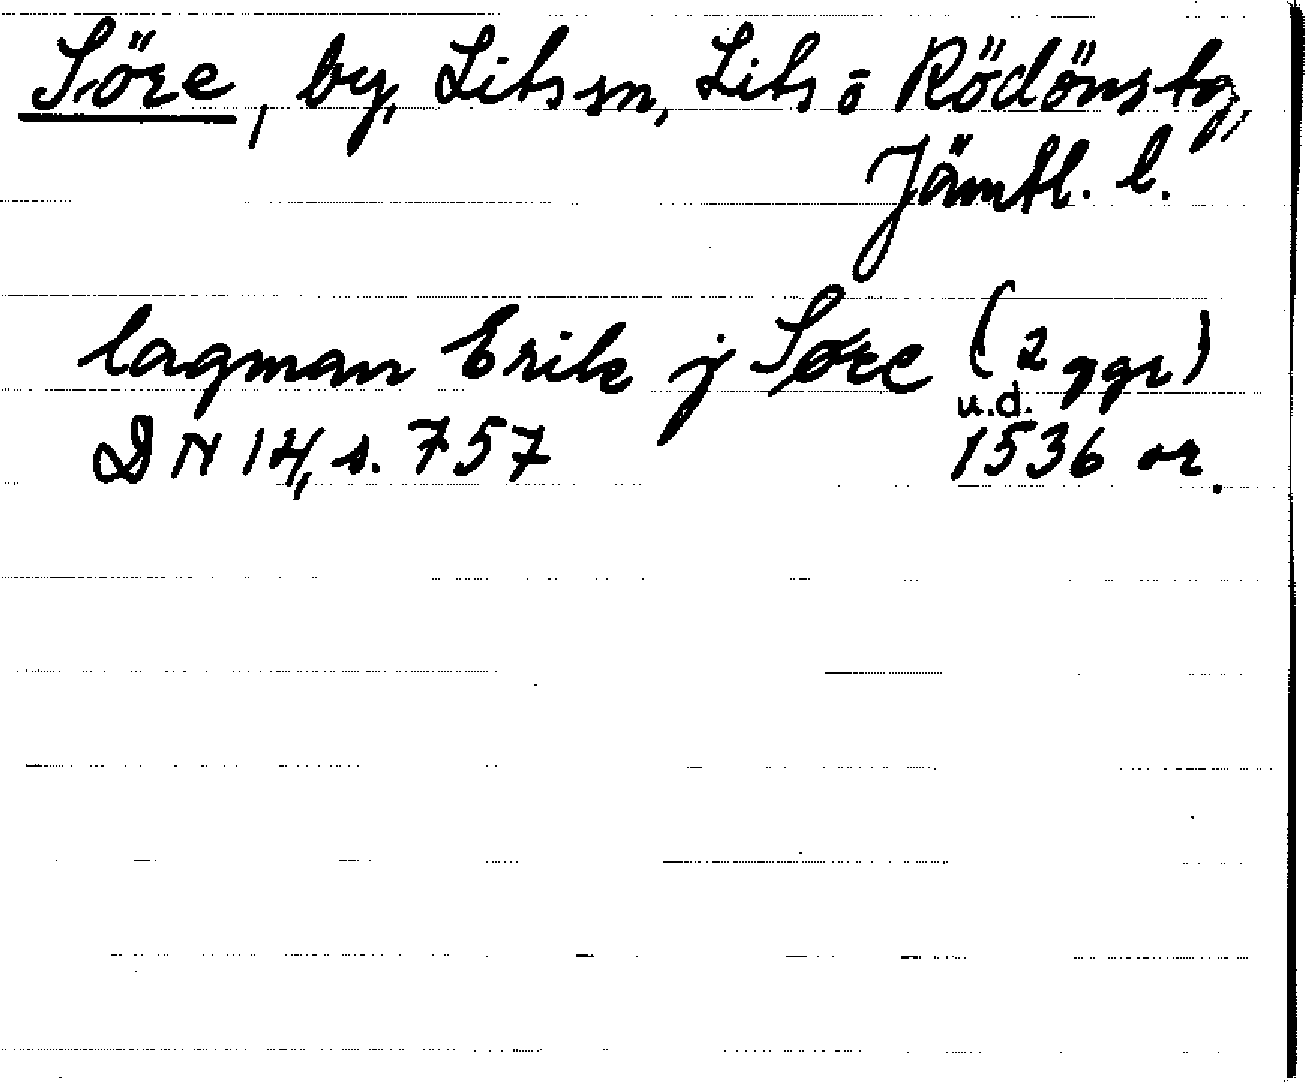 Söre, by, Lits sn, Lits o Rödöns tg,
Jämtl. l.
lagman Erik j Søre (2 ggr)
u.d.
DN 14, s. 757 1536 or.